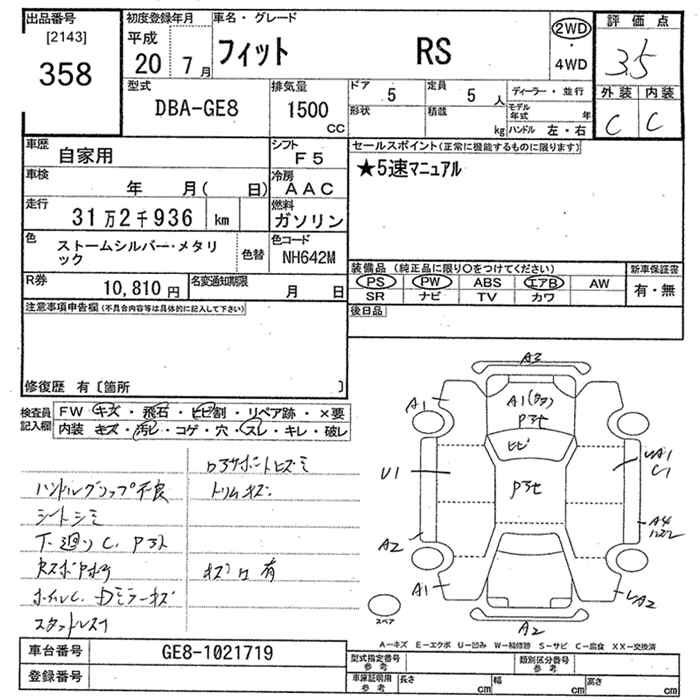 出品番号
[2143]
358
初度登録年月
平成
20 7 月
車名・グレード
フィット RS
2WD
・
4WD
評価点
3.5
外装 内装
C C
型式
DBA-GE8
排気量
1500
CC
ドア 5
定員 5 人
形状
積載 kg
ディーラー・並行
モデル年式 年
ハンドル 左・右
車歴
自家用
シフト
F5
車検
年 月( 日)
冷房
AAC
走行
31万2千936 km
燃料
ガソリン
色
ストームシルバー・メタリック
色替
色コード
NH642M
R券
10,810 円
名変通知期限
月 日
セールスポイント(正常に機能するものに限ります)
★5速マニュアル
装備品 (純正品に限り〇をつけてください)
PS PW ABS エアB AW
SR ナビ TV カワ
新車保証書
有・無
後日品
注意事項申告欄(不具合内容等は具体的に記入して下さい)
修復歴 有〔箇所 〕
検査員
記入欄
FW キズ・飛石・ヒビ割・リペア跡・×要
内装 キズ・汚レ・コゲ・穴・スレ・キレ・破レ
ハンドルグリップ不良
トリムキズ
シートシミ
キズ凹有
スタッドレス
A3
A1
A1
P2
ヒビ
U1
A1
C1
A2
A4
A1
A2
A2
スペア
A-キズ E-エクボ U-凹み W-補修跡 S-サビ C-腐食 XX-交換済
車台番号
GE8-1021719
登録番号
型式指定番号
参考
類別区分番号
参考
車庫証明用
参考
長さ cm
幅 cm
高さ cm